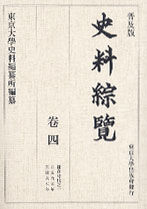 東京大學史料編纂所編纂
普及版
史料綜覽
卷四
東京大學出版會發行